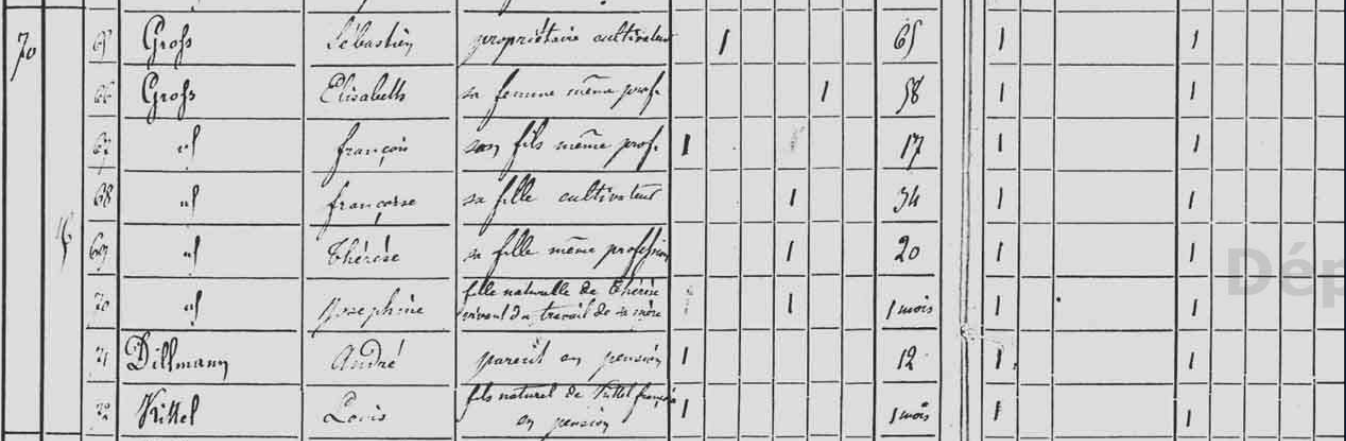 70 65 Gross Sébastien propriétaire cultivateur 1 65 1 1
66 Gross Elisabeth sa femme même prof. 1 58 1 1
67 " françois son fils même prof. 1 17 1 1
68 " françoise sa fille cultivateur 1 34 1 1
69 " Thérèse sa fille même profession 1 20 1 1
70 " Josephine fille naturelle de Thérèse 1 1 mois 1 1
vivant du travail de sa mère
71 Dillmann André parent en pension 1 12 1 1
72 Kittel Louis fils naturel de Kittel 1 1 mois 1 1
en pension
Dép